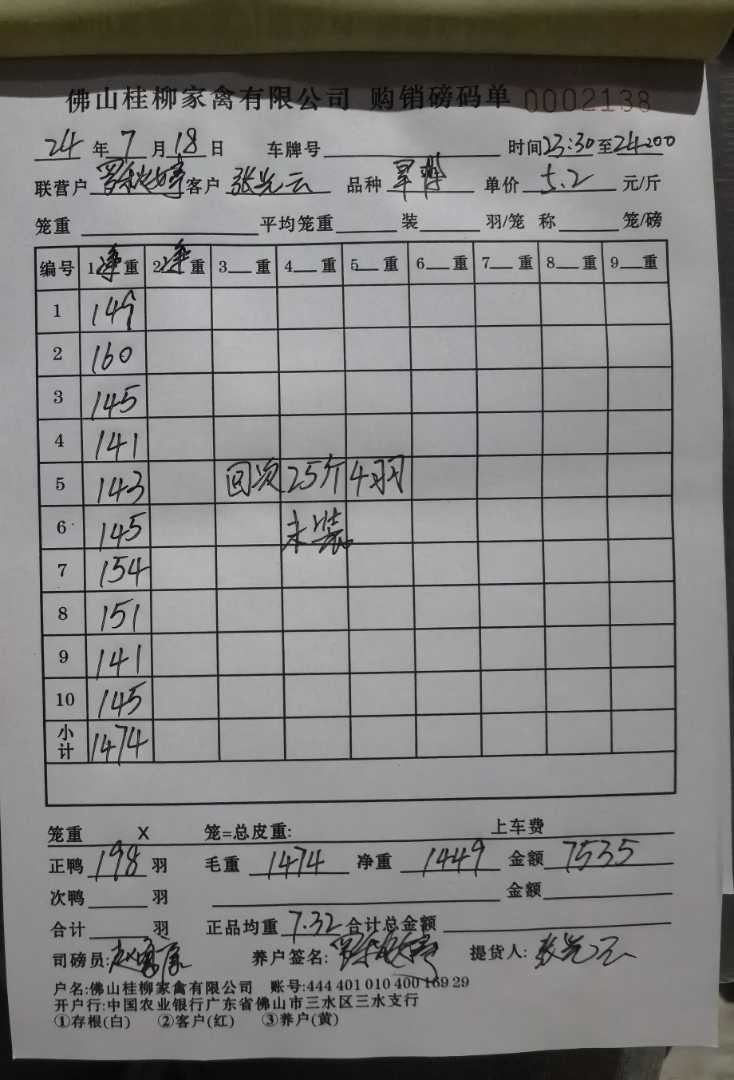 佛山桂柳家禽有限公司 购销磅码单 0002138
24 年 7 月 18 日 车牌号 时间 23:30 至 24:00
联营户 客户 张光云 品种 单价 5.2 元/斤
笼重 平均笼重 装 羽/笼 称 笼/磅
编号 1净重 2净重 3 重 4 重 5 重 6 重 7 重 8 重 9 重
1 149
2 160
3 145
4 141
5 143 回次 25斤 4羽
6 145 未装
7 154
8 151
9 141
10 145
小计 1474
笼重 X 笼=总皮重: 上车费
正鸭 198 羽 毛重 1474 净重 1449 金额 7535
次鸭 羽 金额
合计 羽 正品均重 7.32 合计总金额
司磅员: 养户签名: 提货人: 张光云
户名:佛山桂柳家禽有限公司 账号:444 401 010 400 169 29
开户行:中国农业银行广东省佛山市三水区三水支行
①存根(白) ②客户(红) ③养户(黄)